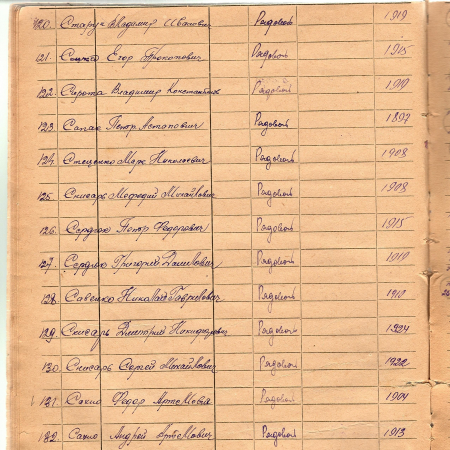 120. Старун Владимир Иванович Рядовой 1919
121. Егор Прокопович Рядовой 1915
122. Сирота Владимир Константинов Рядовой 1919
123. Сапао Петр Астапович Рядовой 1897
124. Стеценко Марк Николаевич Рядовой 1908
125. Снисарь Мефодий Михайлович Рядовой 1908
126. Сердюк Петр Федорович Рядовой 1915
127. Сердюк Григорий Данилович Рядовой 1919
128. Савенко Николай Гаврилович Рядовой 1910
129. Снисарь Дмитрий Никифорович Рядовой 1924
130. Снисарь Сергей Михайлович Рядовой 1922
131. Сахно Федор Артемовия Рядовой 1904
132. Сахно Андрей Артемович Рядовой 1913